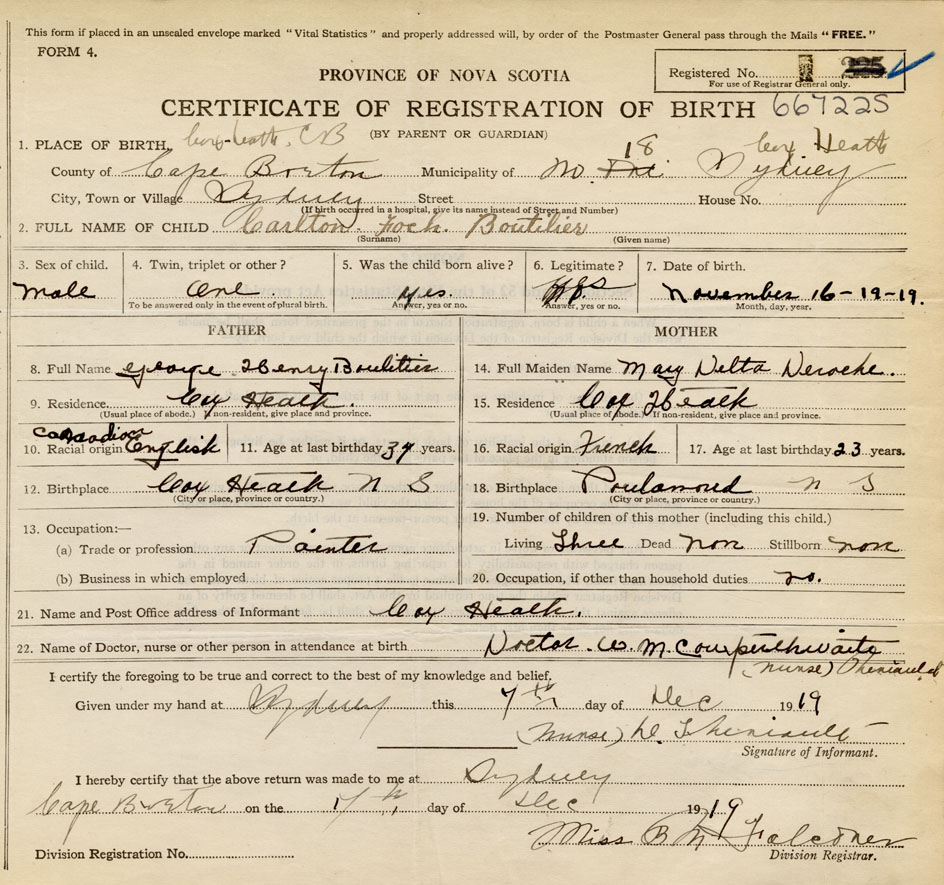 This form if placed in an unsealed envelope marked "Vital Statistics" and properly addressed will, by order of the Postmaster General pass through the Mails "FREE."
FORM 4.
PROVINCE OF NOVA SCOTIA
Registered No.
For use of Registrar General only.
CERTIFICATE OF REGISTRATION OF BIRTH 667225
(BY PARENT OR GUARDIAN)
1. PLACE OF BIRTH, Cox-heath, CB
18 Cox Heath
County of Cape Breton Municipality of No. Sydney
City, Town or Village Sydney Street House No.
(If birth occurred in a hospital, give its name instead of Street and Number)
2. FULL NAME OF CHILD Carlton Foch Boutilier
(Surname) (Given name)
3. Sex of child. 4. Twin, triplet or other? 5. Was the child born alive? 6. Legitimate? 7. Date of birth.
Male One yes. yes November 16-19-19.
To be answered only in the event of plural birth. Answer, yes or no. Answer, yes or no. Month, day, year.
FATHER MOTHER
8. Full Name George Henry Boutilier
9. Residence. Cox Heath.
(Usual place of abode.) If non-resident, give place and province.
Canadian
10. Racial origin English 11. Age at last birthday 34 years.
12. Birthplace Cox Heath N S
(City or place, province or country.)
13. Occupation:—
(a) Trade or profession Painter
(b) Business in which employed
14. Full Maiden Name Mary Delta Deroche.
15. Residence Cox Heath
(Usual place of abode.) If non-resident, give place and province.
16. Racial origin French 17. Age at last birthday 23 years.
18. Birthplace Poulamond N S
(City or place, province or country.)
19. Number of children of this mother (including this child.)
Living Three Dead non Stillborn non
20. Occupation, if other than household duties no.
21. Name and Post Office address of Informant Cox Heath.
22. Name of Doctor, nurse or other person in attendance at birth Doctor. W. M.
(Nurse)
I certify the foregoing to be true and correct to the best of my knowledge and belief.
Given under my hand at Sydney this 7th day of Dec 1919
(Nurse) D. Theriault
Signature of Informant.
I hereby certify that the above return was made to me at Sydney
Cape Breton on the 17th day of Dec 1919
Miss B M Falconer
Division Registration No. Division Registrar.